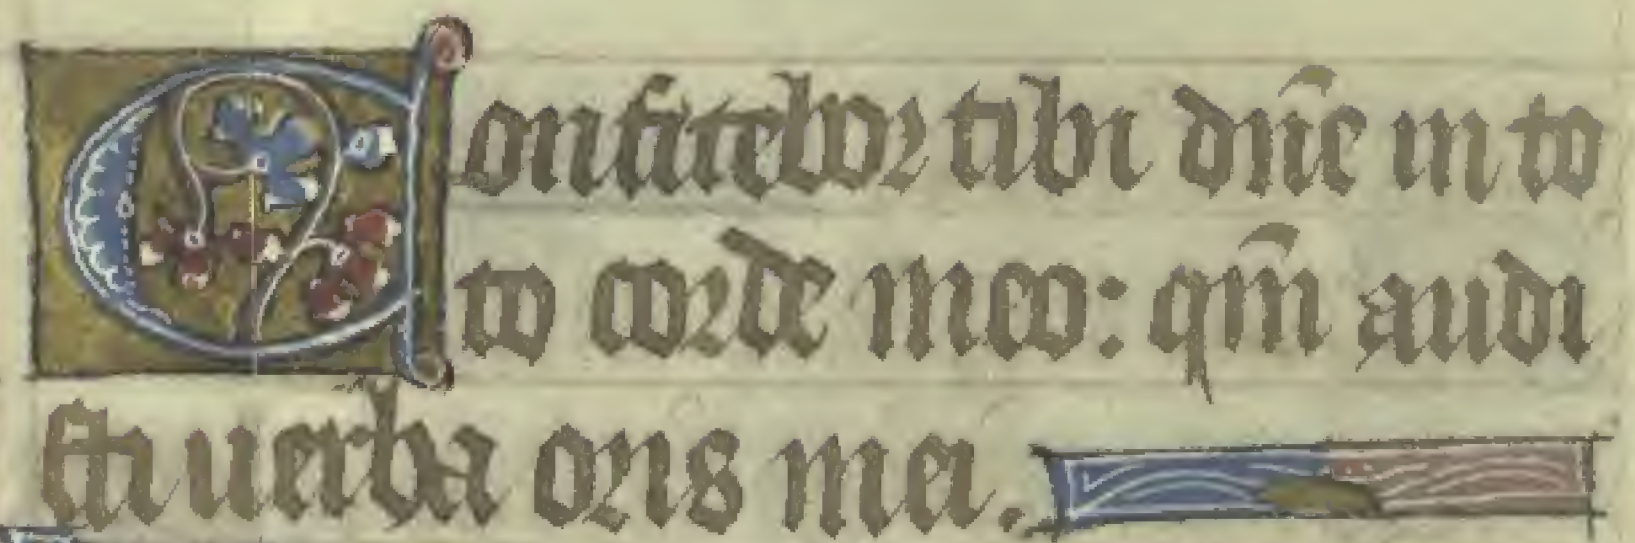 Confitebor tibi dn̄e in to
to corde meo: qm̄ audi
sti uerba oris mei.